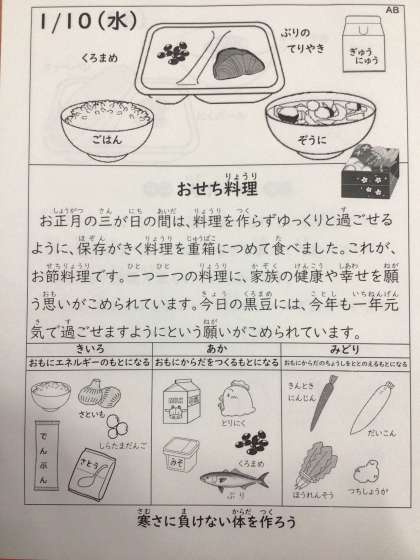 AB
1/10(水)
くろまめ
ぶりの
てりやき
ぎゅう
にゅう
ごはん
ぞうに
おせち料理
お正月の三が日の間は、料理を作らずゆっくりと過ごせる
ように、保存がきく料理を重箱につめて食べました。これが、
お節料理です。一つ一つの料理に、家族の健康や幸せを願
う思いがこめられています。今日の黒豆には、今年も一年元
気で過ごせますようにという願いがこめられています。
きいろ
おもにエネルギーのもとになる
さといも
しらたまだんご
でんぷん
さとう
あか
おもにからだをつくるもとになる
とりにく
みそ
くろまめ
ぶり
みどり
おもにからだのちょうしをととのえるもとになる
きんとき
にんじん
だいこん
ほうれんそう
つちしょうが
寒さに負けない体を作ろう